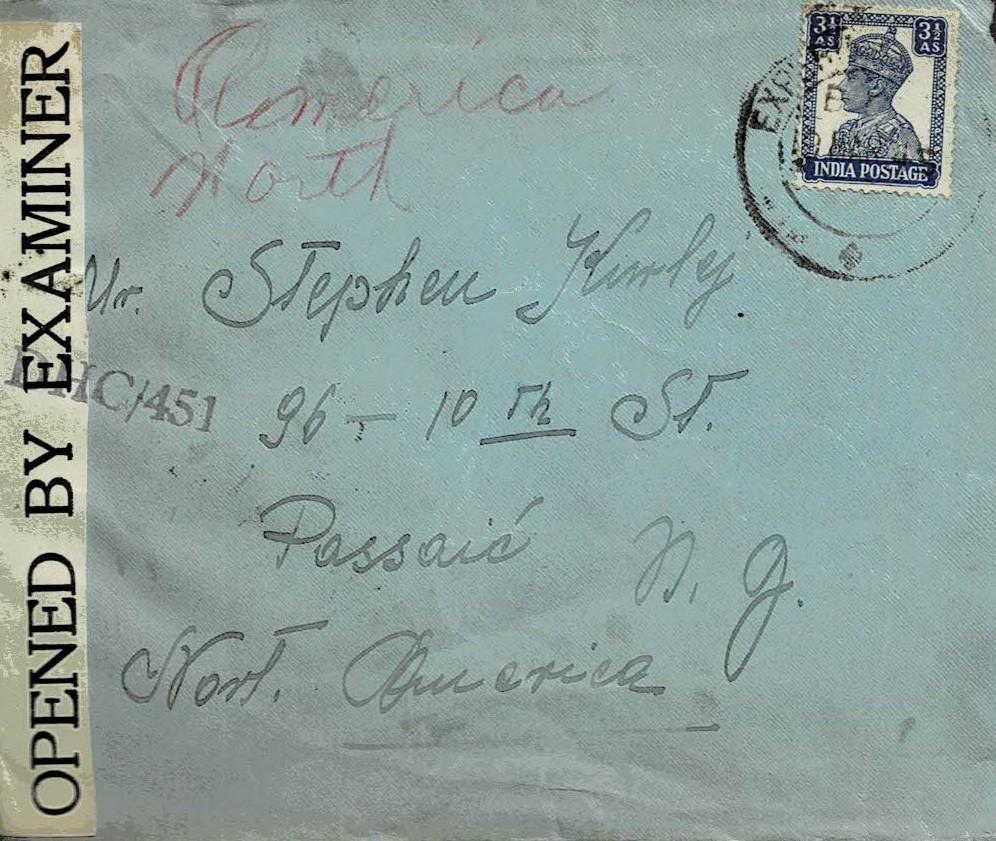 OPENED BY EXAMINER
DHC/451
America
North
3½ AS 3½ AS
INDIA POSTAGE
Mr. Stephen Kurlej
96 - 10 th St.
Passaić N. J.
Nort. America